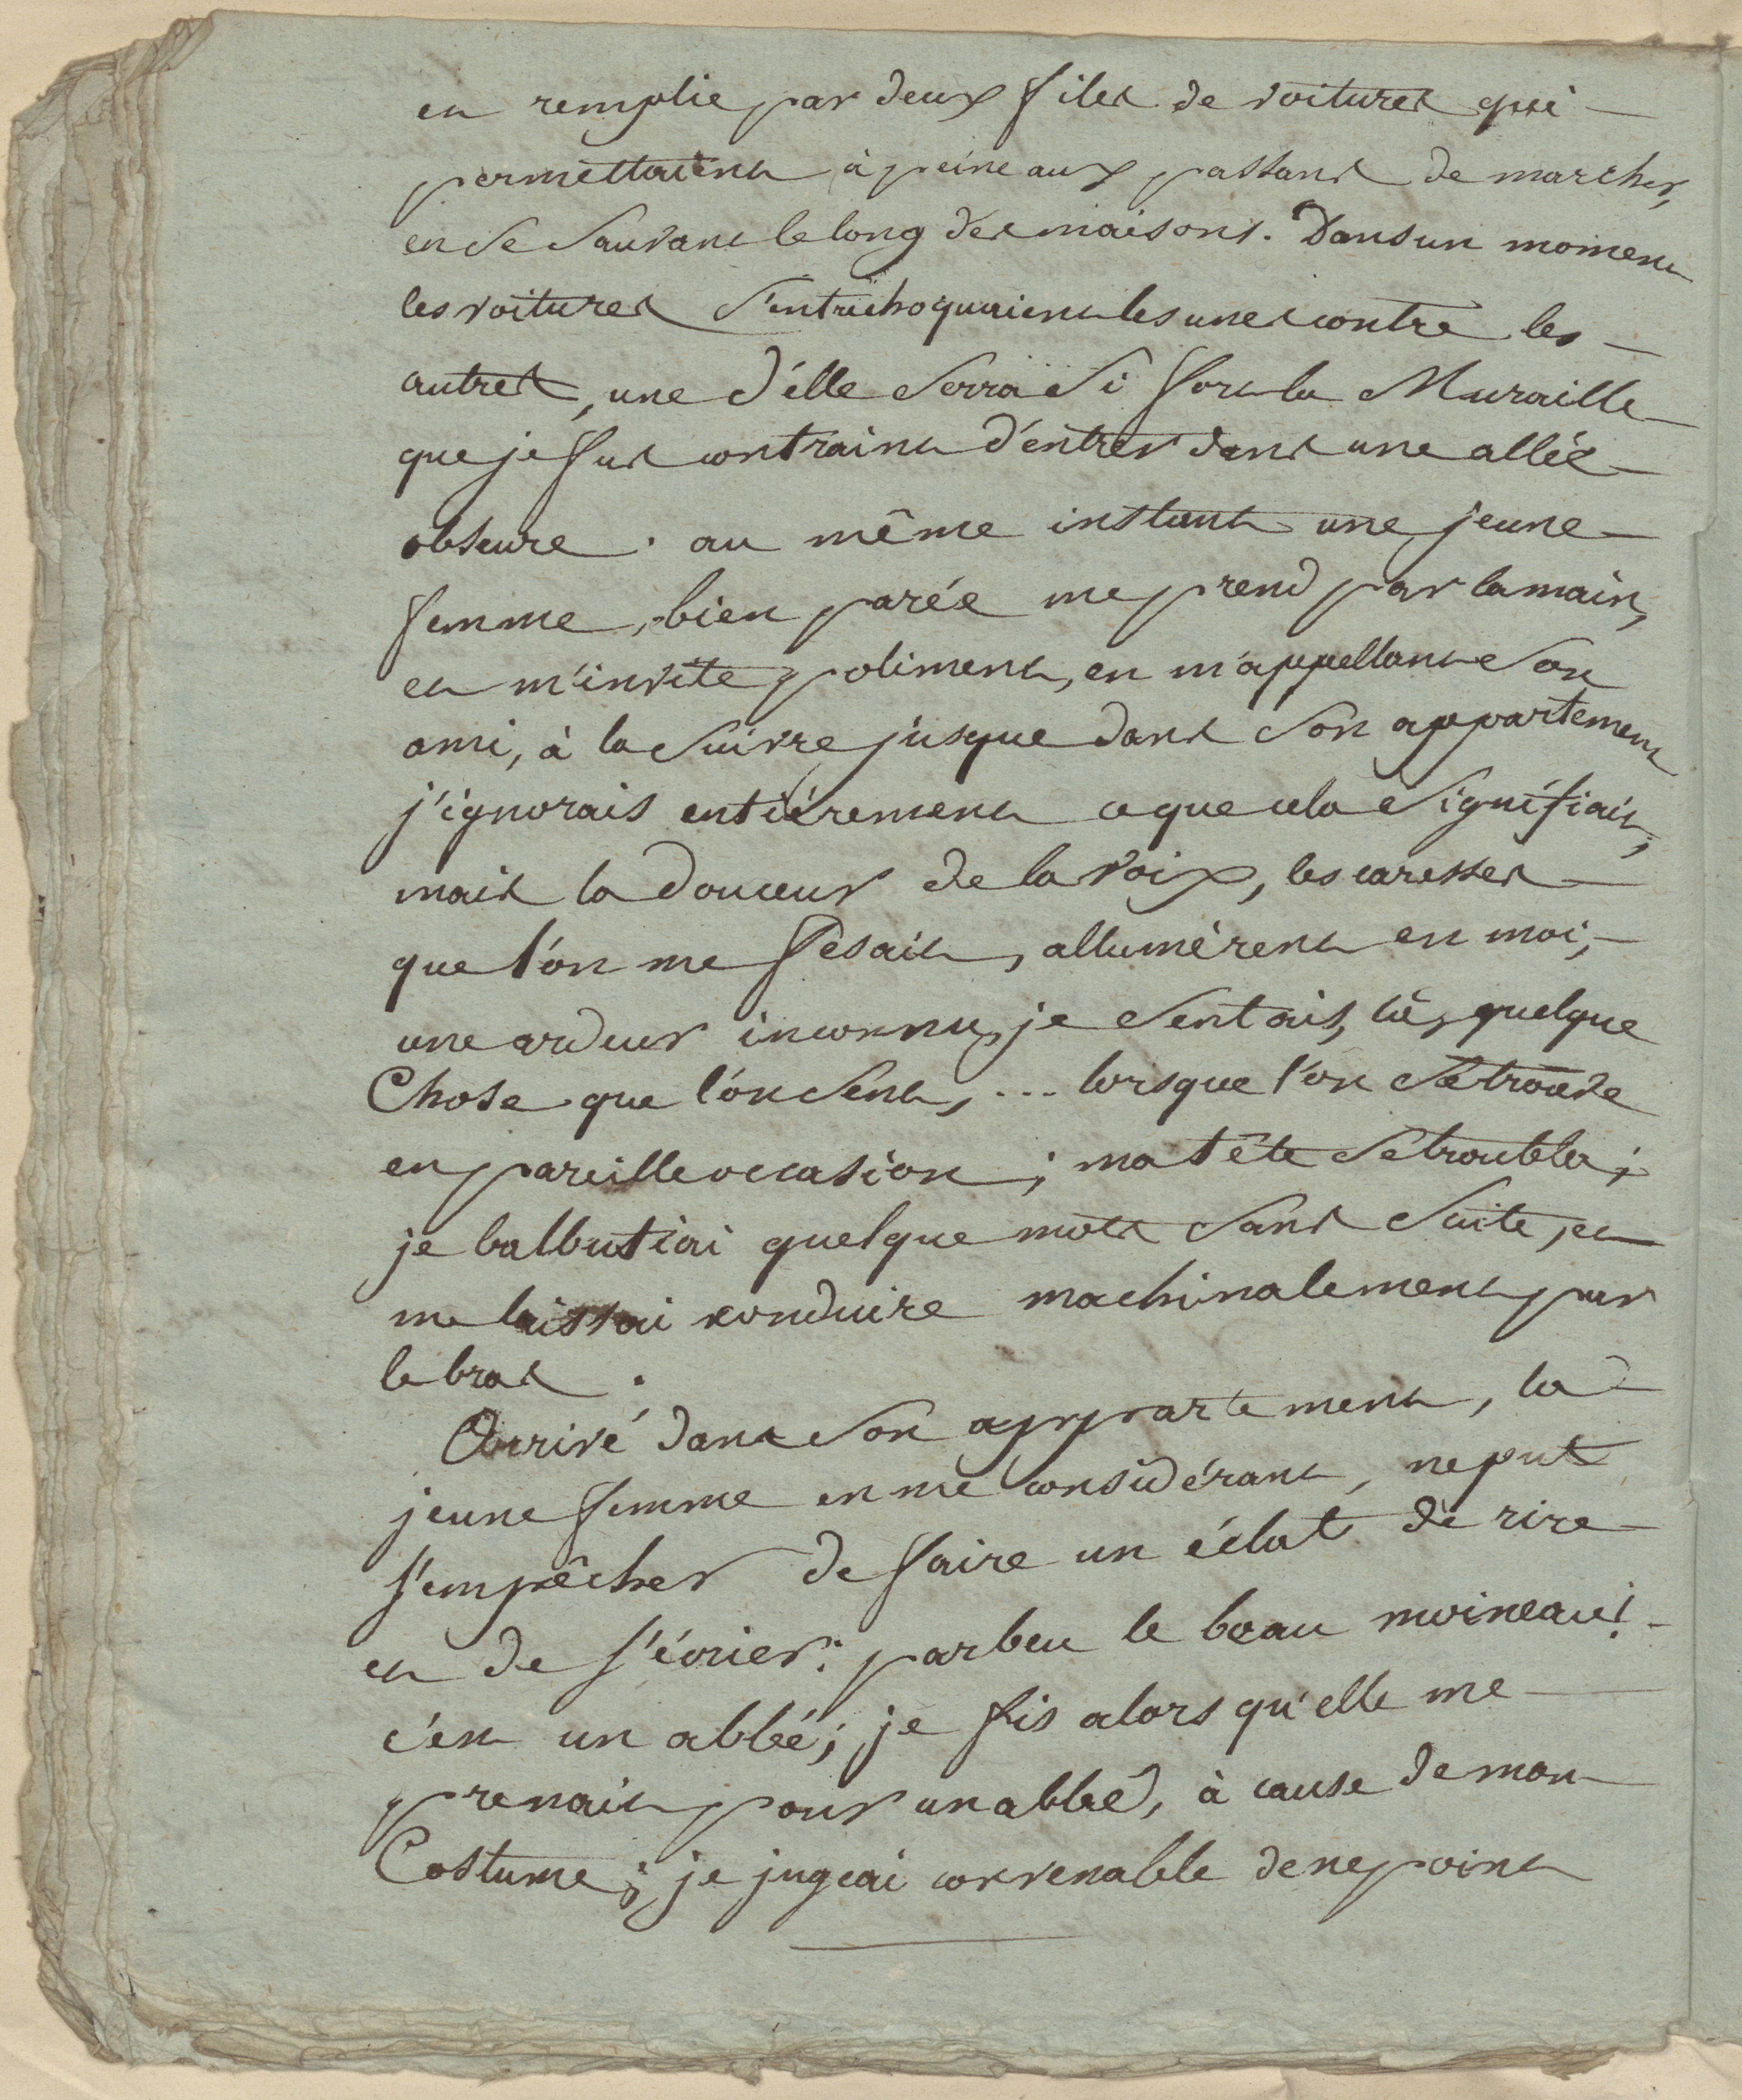 est remplie par deux files de voitures qui
permettaient à peine aux passans de marcher,
en se sauvant le long des maisons. Dans un moment
les voitures s'entrechoquaient les unes contre les
autres, une d'elle serra si fort la Muraille
que je fus contraint d'entrer dans une allée
obscure. au même instant une jeune
femme, bien parée me prend par la main,
et m'invite poliment, en m'appellant son
ami, à la suivre jusque dans son appartement
j'ignorais entiérement ce que cela signifiait,
mais la douceur de la voix, les caresses
que l'on me fesait, allumérent en moi,
une ardeur inconnue, je sentais, là, quelque
Chose que l'on sent, ... lorsque l'on se trouve
en pareille occasion; ma tête se troubla;
je balbutiai quelque mots sans suite, et
me laissai conduire machinalement par
le bras.
Arrivé dans son appartement, la
jeune femme en me considérant, ne put
s'empêcher de faire un éclat de rire
et de s'écrier: parbeu le beau moineau!
c'est un abbé; je vis alors qu'elle me
prenait pour un abbé, à cause de mon
Costume; je jugeai convenable de ne point